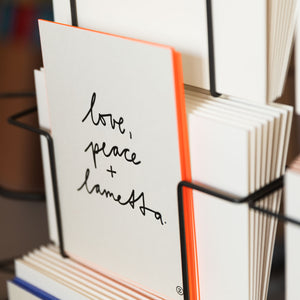 love,
peace
+
lametta.